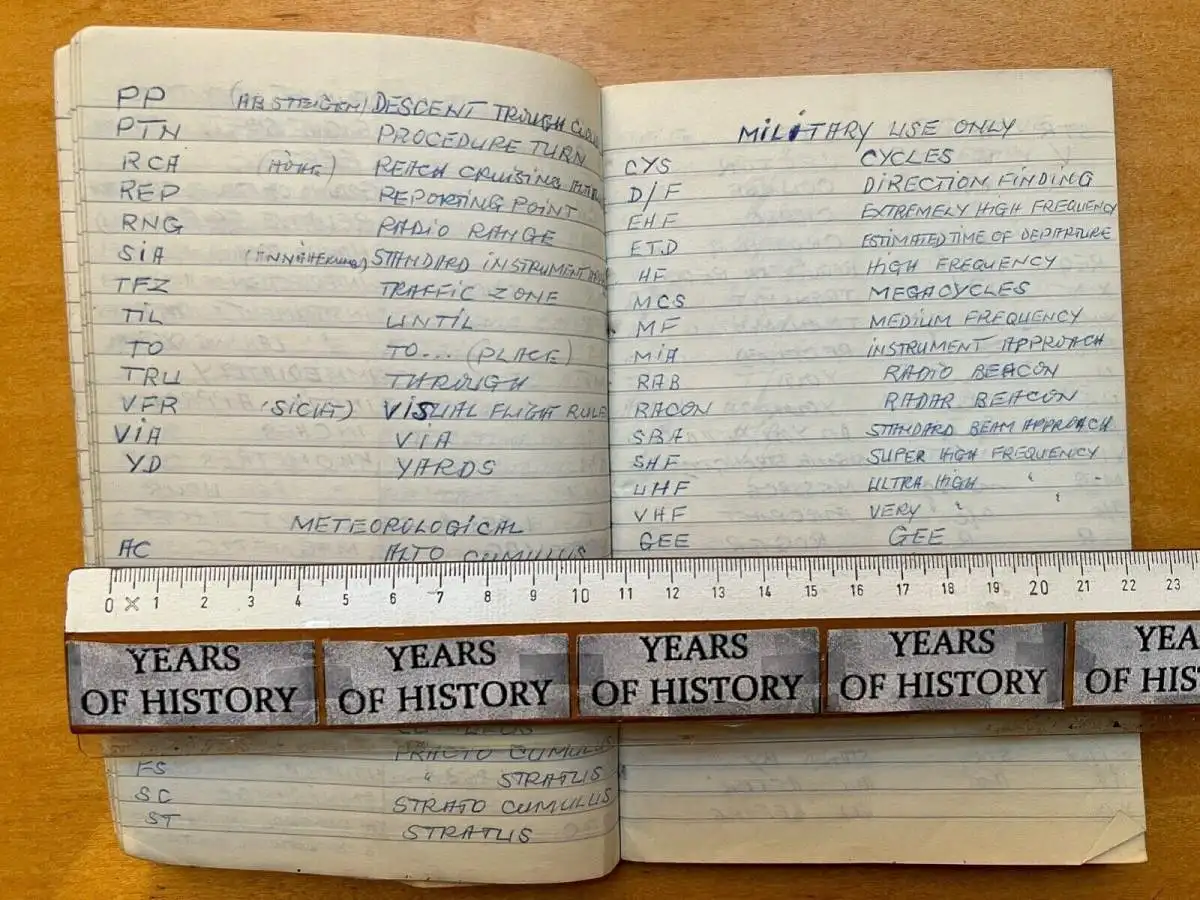 PP (ABSTEIGEN) DESCENT TROUGH CLOUD
PTN PROCEDURE TURN
RCA (HÖHE) REACH CRUISING
REP REPORTING POINT
RNG RADIO RANGE
SIA (ANNÄHERUNG) STANDARD INSTRUMENT
TFZ TRAFFIC ZONE
TIL UNTIL
TO TO... (PLACE)
TRU THROUGH
VFR (SICHT) VISUAL FLIGHT RULE
VIA VIA
YD YARDS
METEOROLOGICAL
AC ALTO CUMULUS
FRACTO CUMULUS
FS " STRATUS
SC STRATO CUMULUS
ST STRATUS
MILITARY USE ONLY
CYS CYCLES
D/F DIRECTION FINDING
EHF EXTREMELY HIGH FREQUENCY
ETD ESTIMATED TIME OF DEPARTURE
HF HIGH FREQUENCY
MCS MEGACYCLES
MF MEDIUM FREQUENCY
MIA INSTRUMENT APPROACH
RAB RADIO BEACON
RACON RADAR BEACON
SBA STANDARD BEAM APPROACH
SHF SUPER HIGH FREQUENCY
UHF ULTRA HIGH "
VHF VERY " "
GEE GEE
0 1 2 3 4 5 6 7 8 9 10 11 12 13 14 15 16 17 18 19 20 21 22 23
YEARS OF HISTORY
YEARS OF HISTORY
YEARS OF HISTORY
YEARS OF HISTORY
YEA
OF HIS